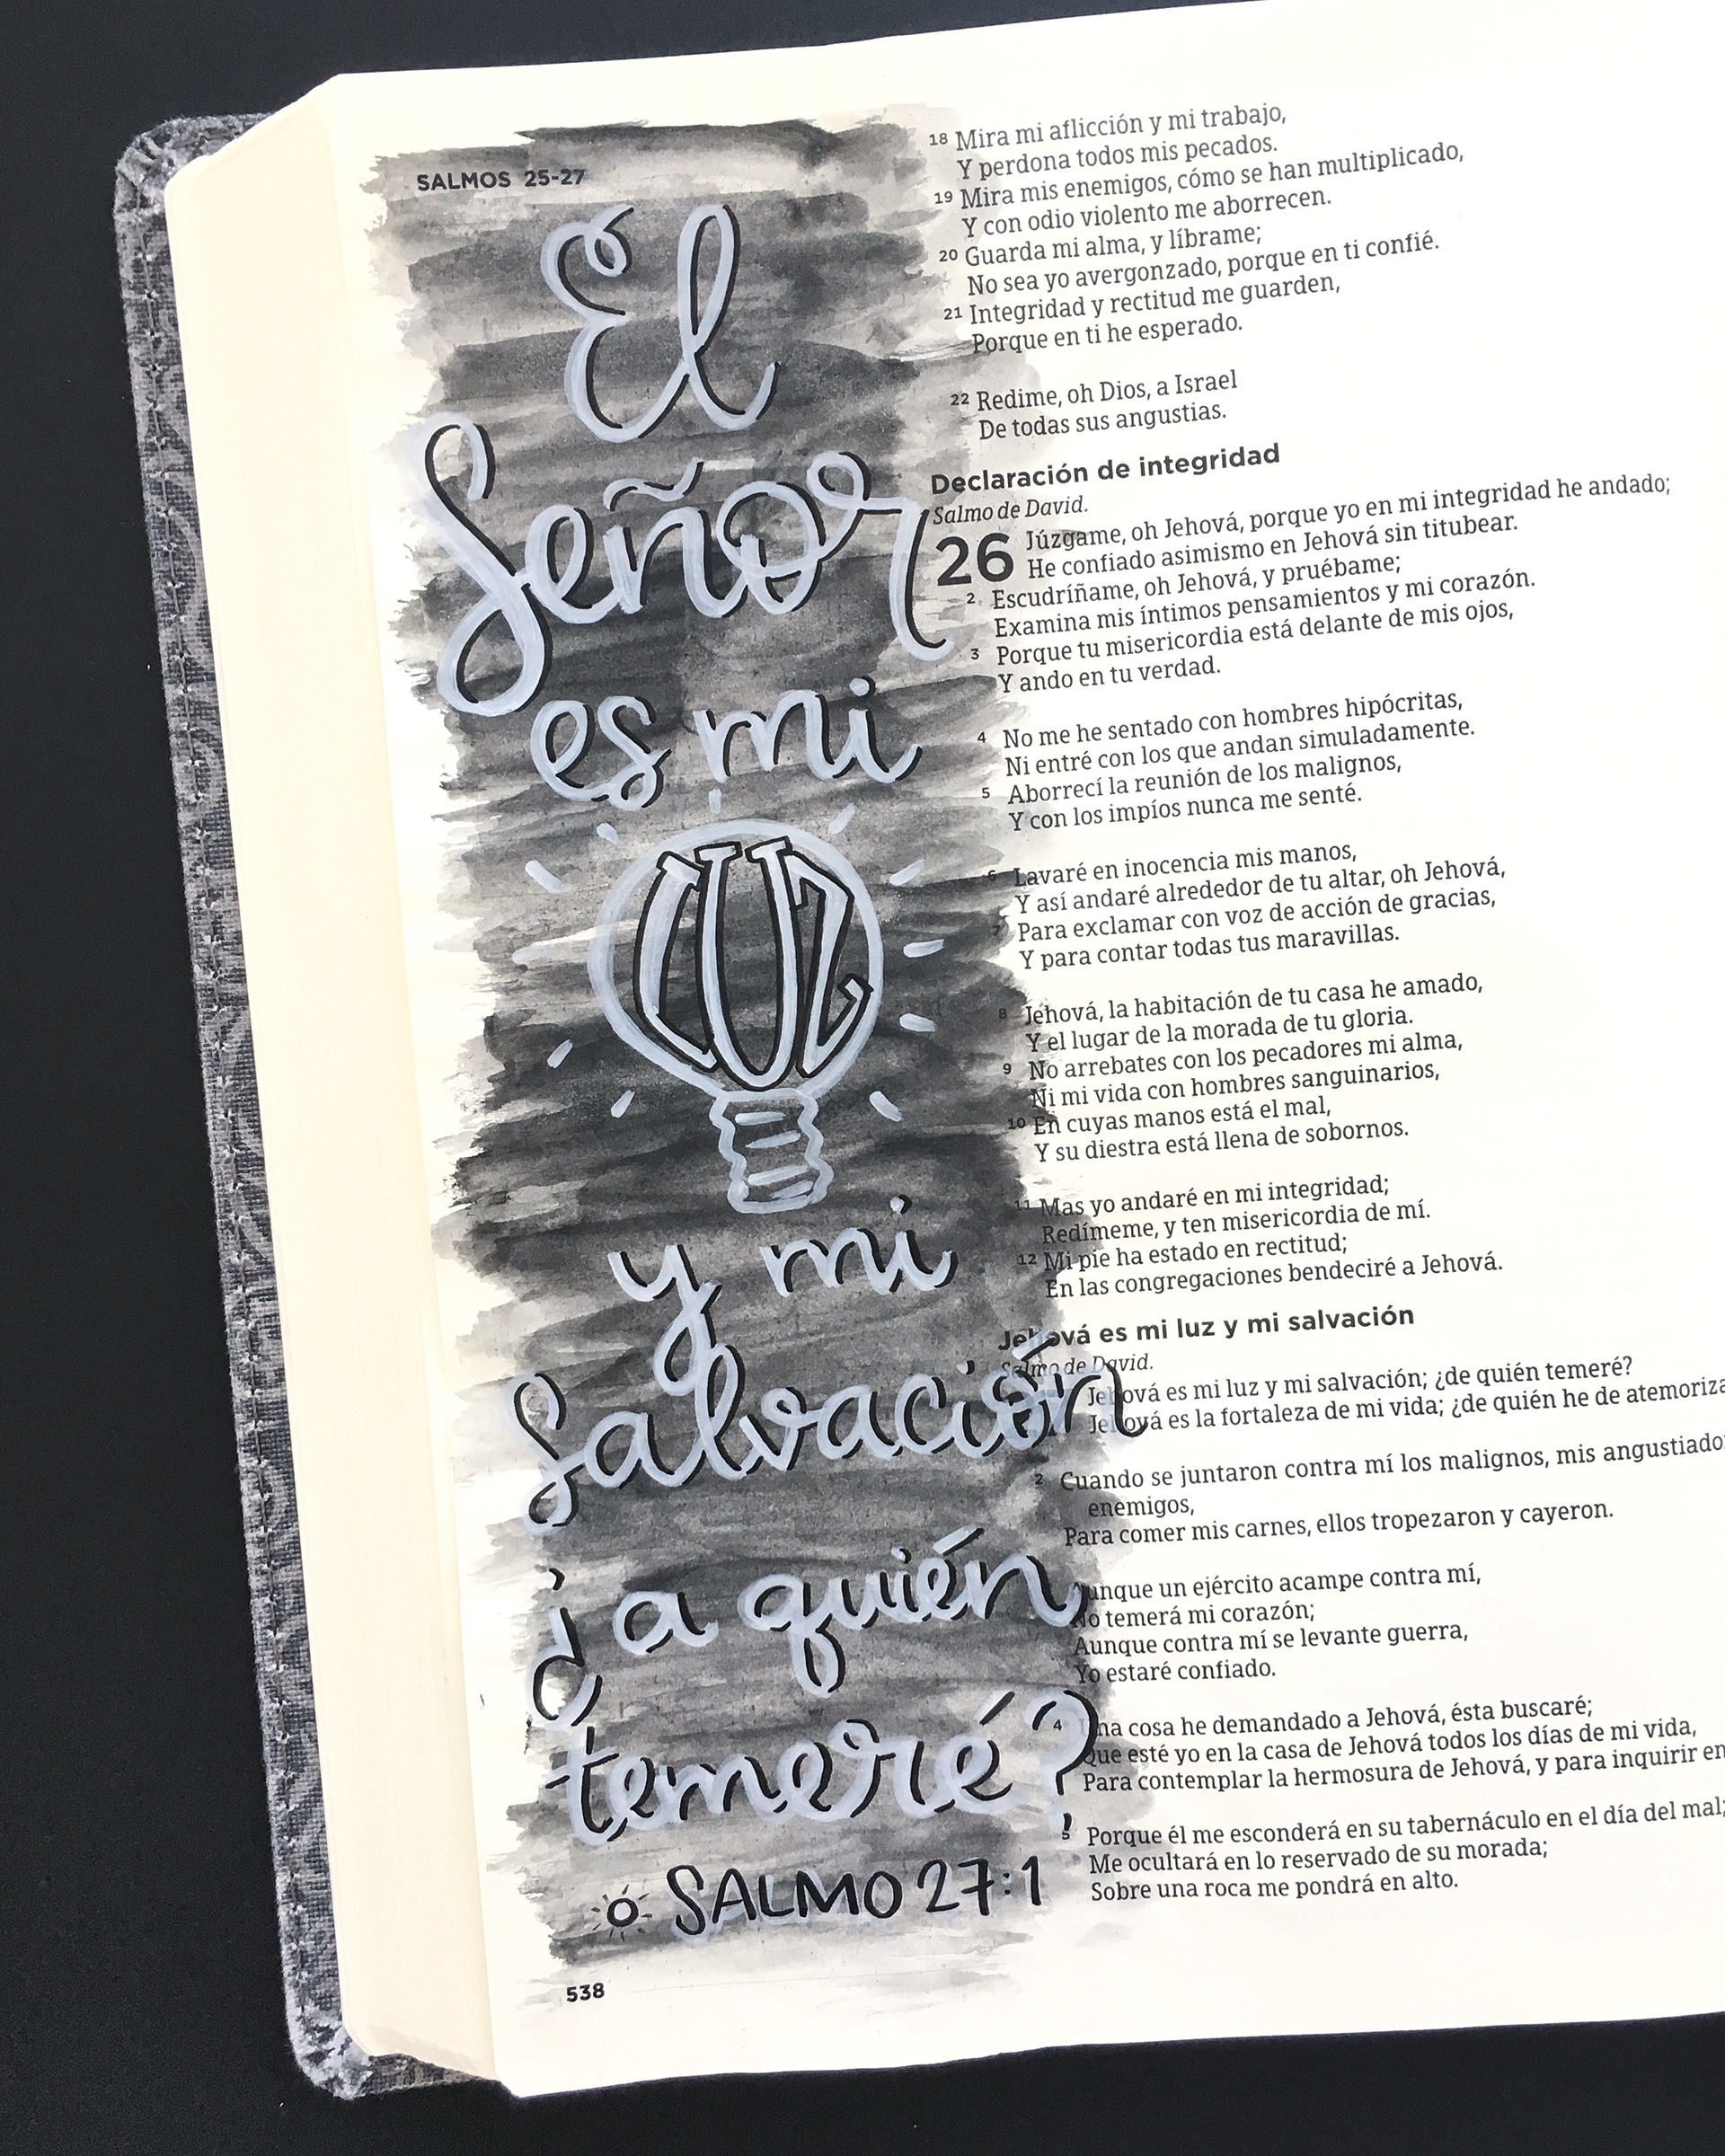 SALMOS 25-27
El
Señor
es mi
LUZ
y mi
Salvación
¿a quién
temeré?
SALMO 27:1
538
18 Mira mi aflicción y mi trabajo,
Y perdona todos mis pecados.
19 Mira mis enemigos, cómo se han multiplicado,
Y con odio violento me aborrecen.
20 Guarda mi alma, y líbrame;
No sea yo avergonzado, porque en ti confié.
21 Integridad y rectitud me guarden,
Porque en ti he esperado.
22 Redime, oh Dios, a Israel
De todas sus angustias.
Declaración de integridad
Salmo de David.
26 Júzgame, oh Jehová, porque yo en mi integridad he andado;
He confiado asimismo en Jehová sin titubear.
2 Escudríñame, oh Jehová, y pruébame;
Examina mis íntimos pensamientos y mi corazón.
3 Porque tu misericordia está delante de mis ojos,
Y ando en tu verdad.
4 No me he sentado con hombres hipócritas,
Ni entré con los que andan simuladamente.
5 Aborrecí la reunión de los malignos,
Y con los impíos nunca me senté.
6 Lavaré en inocencia mis manos,
Y así andaré alrededor de tu altar, oh Jehová,
7 Para exclamar con voz de acción de gracias,
Y para contar todas tus maravillas.
8 Jehová, la habitación de tu casa he amado,
Y el lugar de la morada de tu gloria.
9 No arrebates con los pecadores mi alma,
Ni mi vida con hombres sanguinarios,
10 En cuyas manos está el mal,
Y su diestra está llena de sobornos.
11 Mas yo andaré en mi integridad;
Redímeme, y ten misericordia de mí.
12 Mi pie ha estado en rectitud;
En las congregaciones bendeciré a Jehová.
Jehová es mi luz y mi salvación
Salmo de David.
Jehová es mi luz y mi salvación; ¿de quién temeré?
Jehová es la fortaleza de mi vida; ¿de quién he de
2 Cuando se juntaron contra mí los malignos, mis
enemigos,
Para comer mis carnes, ellos tropezaron y cayeron.
Aunque un ejército acampe contra mí,
No temerá mi corazón;
Aunque contra mí se levante guerra,
Yo estaré confiado.
4 Una cosa he demandado a Jehová, ésta buscaré;
Que esté yo en la casa de Jehová todos los días de mi vida,
Para contemplar la hermosura de Jehová, y para inquirir en
5 Porque él me esconderá en su tabernáculo en el día del mal;
Me ocultará en lo reservado de su morada;
Sobre una roca me pondrá en alto.